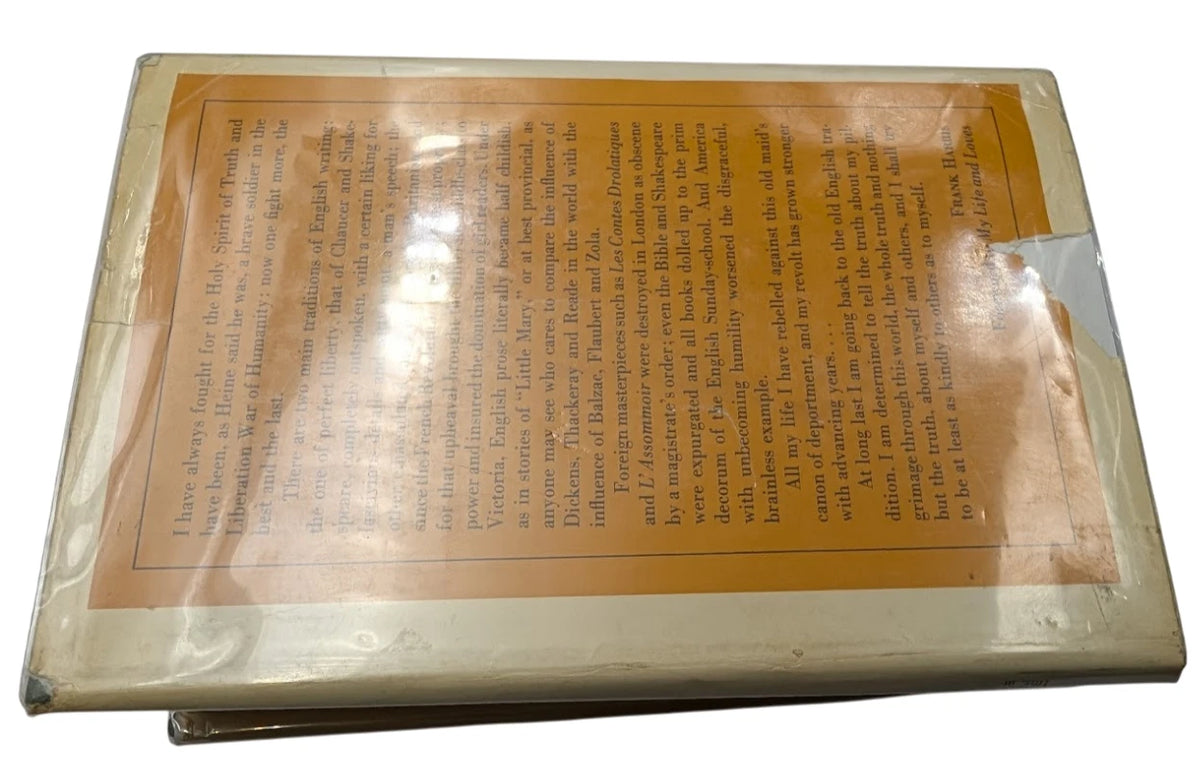 I have always fought for the Holy Spirit of Truth and
have been, as Heine said he was, a brave soldier in the
Liberation War of Humanity: now one fight more, the
best and the last.
There are two main traditions of English writing:
the one of perfect liberty, that of Chaucer and Shake-
speare, completely outspoken, with a certain liking for
man's speech; the
since the French
for that upheaval brought
power and insured the domination of girl readers. Under
Victoria, English prose literally became half childish,
as in stories of "Little Mary," or at best provincial, as
anyone may see who cares to compare the influence of
Dickens, Thackeray and Reade in the world with the
influence of Balzac, Flaubert and Zola.
Foreign masterpieces such as Les Contes Drolatiques
and L'Assommoir were destroyed in London as obscene
by a magistrate's order; even the Bible and Shakespeare
were expurgated and all books dolled up to the prim
decorum of the English Sunday-school. And America
with unbecoming humility worsened the disgraceful,
brainless example.
All my life I have rebelled against this old maid's
canon of deportment, and my revolt has grown stronger
with advancing years. . . .
At long last I am going back to the old English tra-
dition. I am determined to tell the truth about my pil-
grimage through this world, the whole truth and nothing
but the truth, about myself and others, and I shall try
to be at least as kindly to others as to myself.
FRANK HARRIS
My Life and Loves